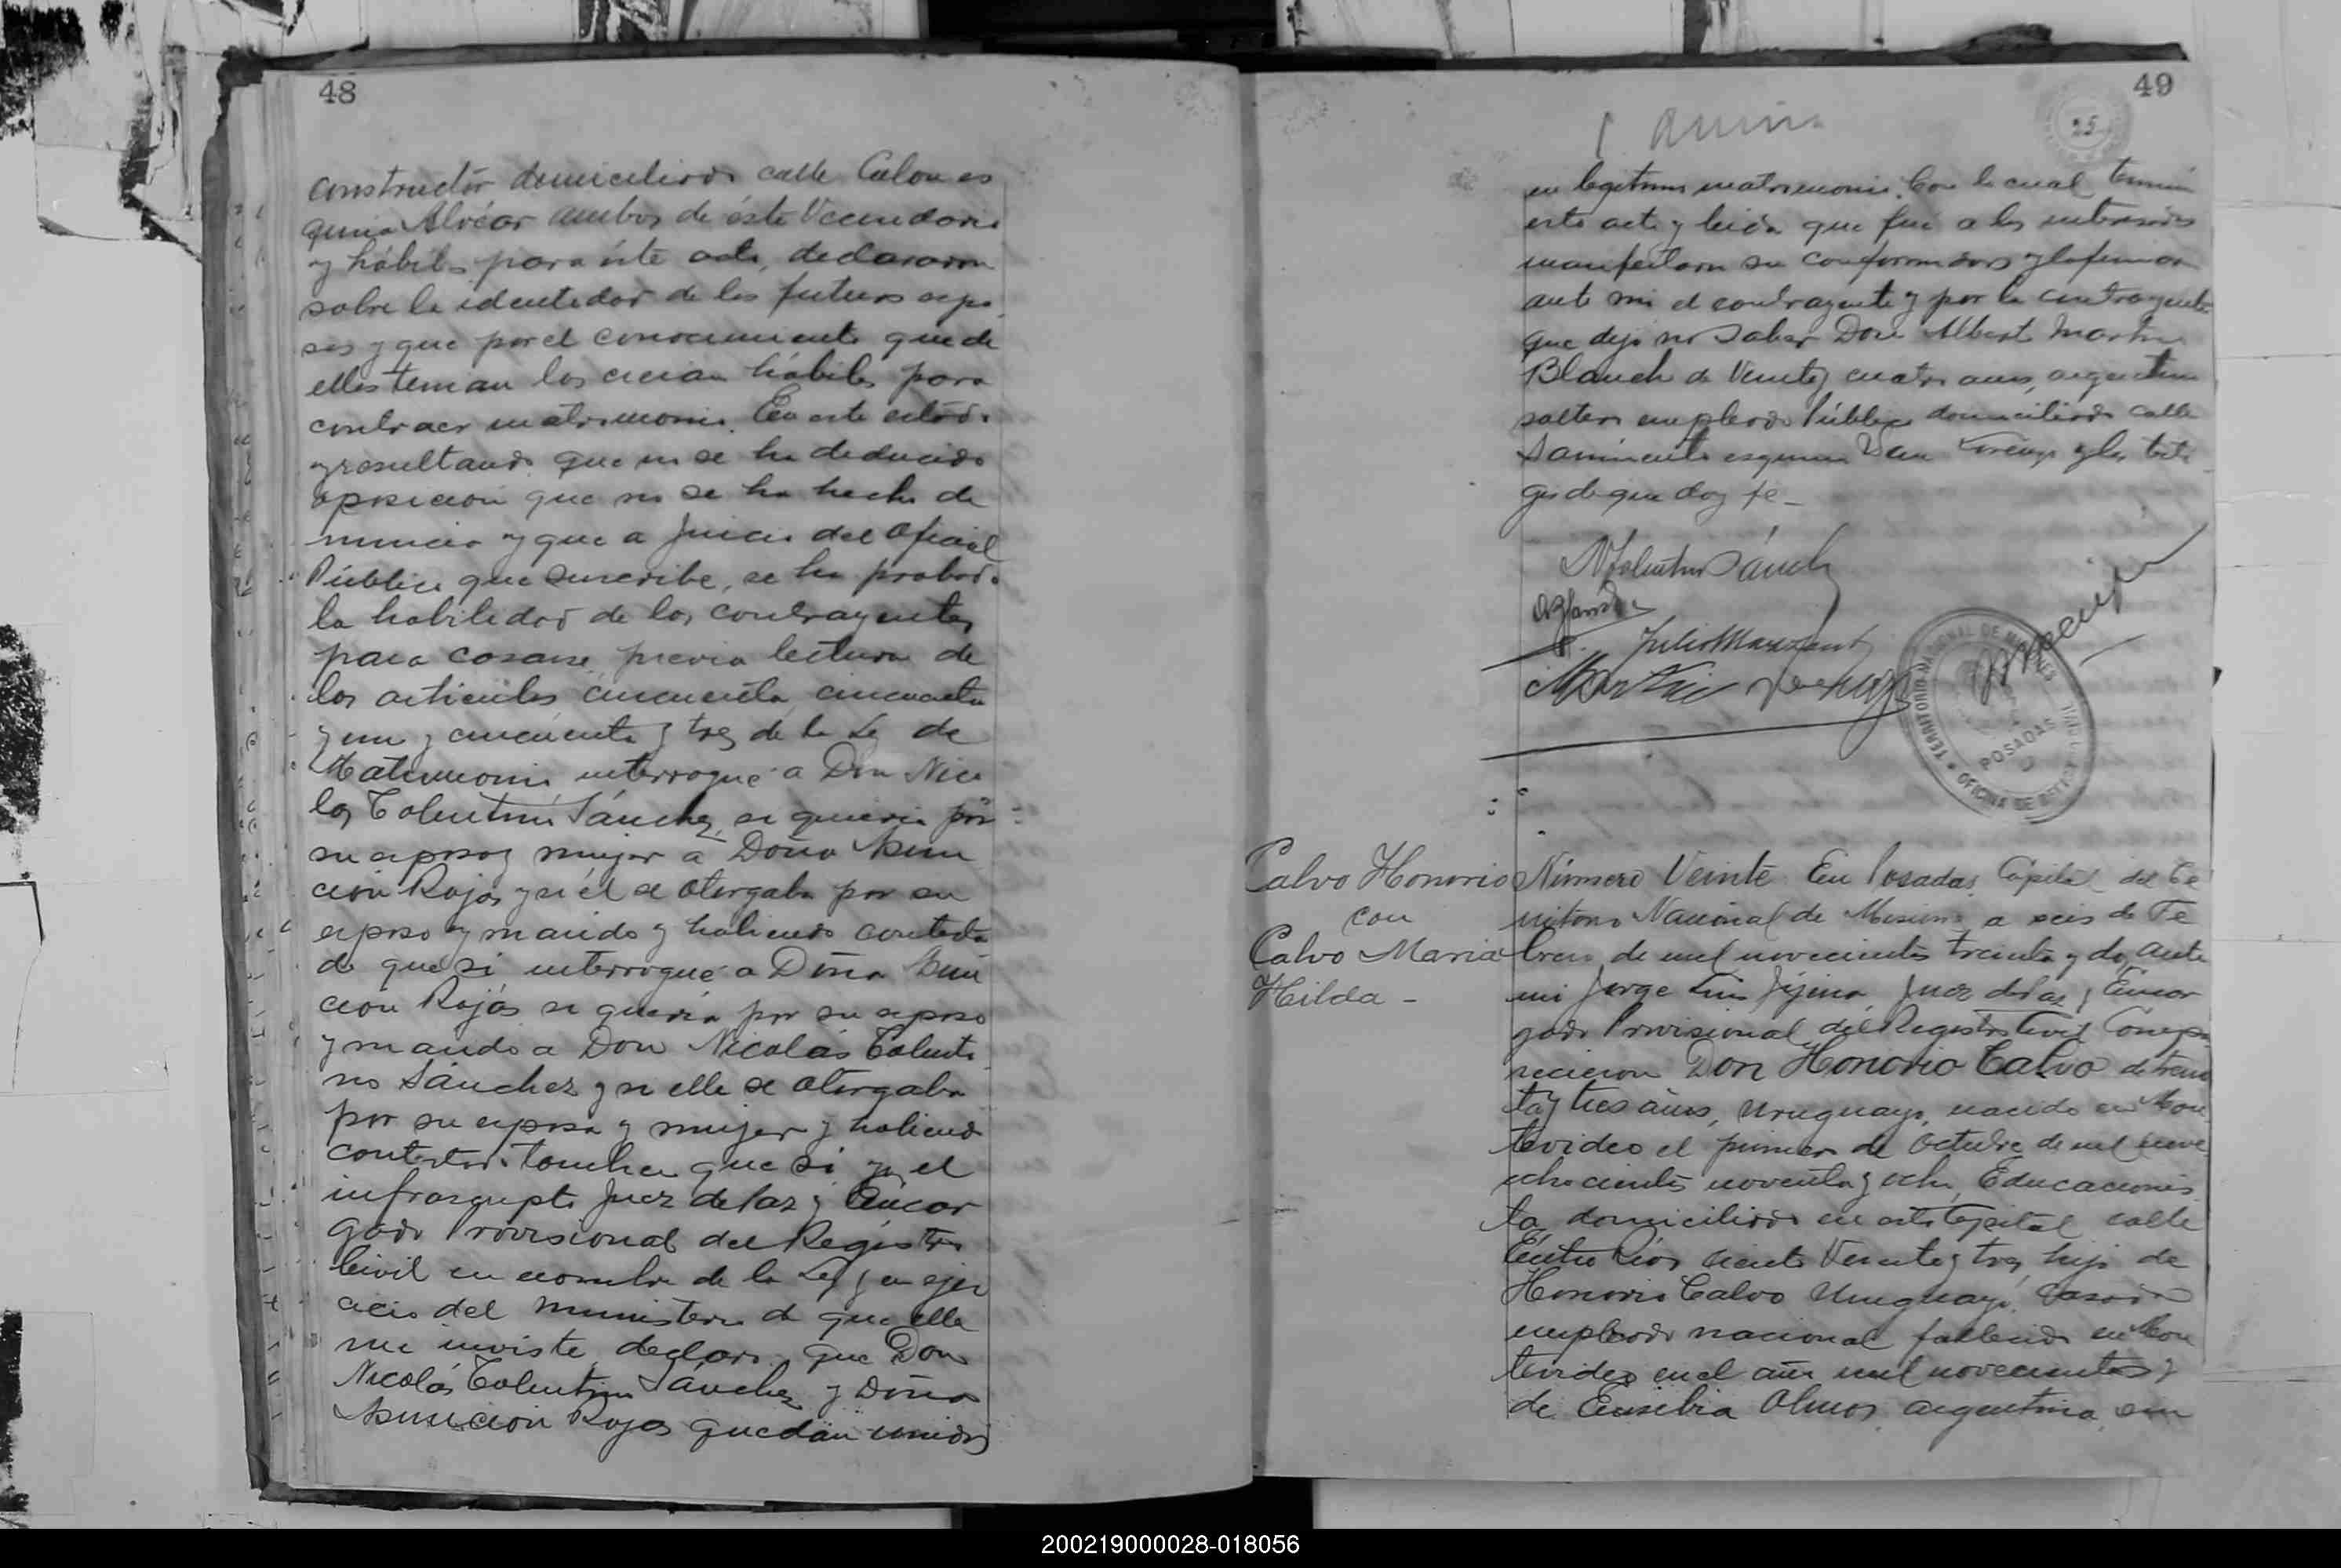 48
constructór domiciliado calle Colon es
quina Alvéar ambos de éste Vecindario
y hábiles para éste acto, declararon
sobre la identidad de los futuros espo
sos y que por el conocimiento que de
ellos tenian los creian hábiles para
contraer matrimonio. En este estado
y resultando que no se ha deducido
oposicion que no se ha hecho de
nuncia y que a Juicio del Oficial
Público que suscribe, se ha probado
la habilidad de los contrayentes
para casarse, previa lectura de
los articulos cincuenta, cincuenta
y uno y cincuenta y tres de la Ley de
Matrimonio interrogué a Don Nico
las Tolentino Sánchez, si queria por
su esposa y mujer a Doña Asun
ción Rojas y si él se otorgaba por su
esposo y marido y habiendo contesta
do que si interrogué a Doña Asun
ción Rojas si queria por su esposo
y marido a Don Nicolás Tolenti
no Sánchez y si ella se otorgaba
por su esposa y mujer y habiendo
contestado tambien que si yo el
infrascripto Juez de Paz y Encar
gado Provisional del Registro
Civil en nombre de la Ley y en ejer
cicio del ministerio de que ella
me inviste, declaro: que Don
Nicolás Tolentino Sánchez y Doña
Asunción Rojas quedan unidos
49
25
en legitimo matrimonio. Con lo cual terminó
este acto y leida que fué a los interesados
manifestaron su conformidad y la firmaron
ante mi el contrayente y por la contrayente
que dijo no saber Don Alberto Martin
Blanch de Veinte y cuatro años, argentino
soltero empleado Público domiciliado calle
Sarmiento esquina San Lorenzo y los testi
gos de que doy fé_
N Tolentino Sánchez
Julio
TERRITORIO NACIONAL DE MISIONES
POSADAS
OFICINA DE
Calvo Honorio
con
Calvo Maria
Hilda -
Número Veinte En Posadas, Capital del Te
rritorio Nacional de Misiones a seis de Fe
brero de mil novecientos treinta y dos, ante
mi Jorge Luis Juez de Paz y Encar
gado Provisional del Registro Civil Compa
recieron Don Honorio Calvo de trein
ta y tres años, Uruguayo, nacido en Mon
tevideo el primero de Octubre de mil
ochocientos noventa y ocho, Educacionis
ta domiciliado en esta Capital calle
Entre Rios ciento Veinte y tres, hijo de
Honorio Calvo Uruguayo, casado
empleado nacional fallecido en Mon
tevideo en el año mil novecientos y
de Eusebia Olmos, argentina, sin